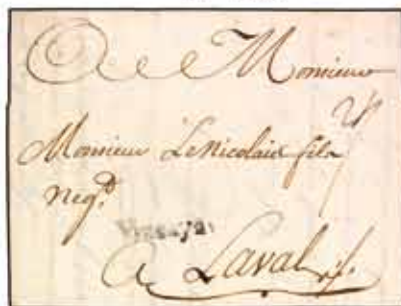 Monsieur
Monsieur LeNicolais fils
Neg.t
Vizcaya
A Laval